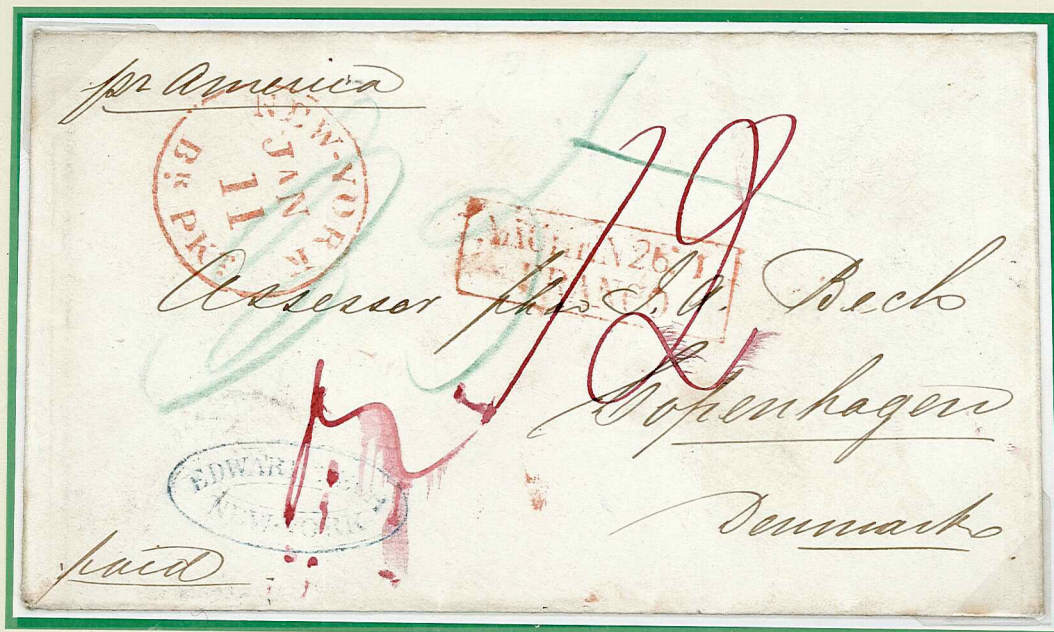 pr America
NEW-YORK
JAN
11
Br PKT
AACHEN 26 1
FRANCO
12
Assessor J. A. Beck
Copenhagen
Denmark
EDWARD
NEW-YORK
paid